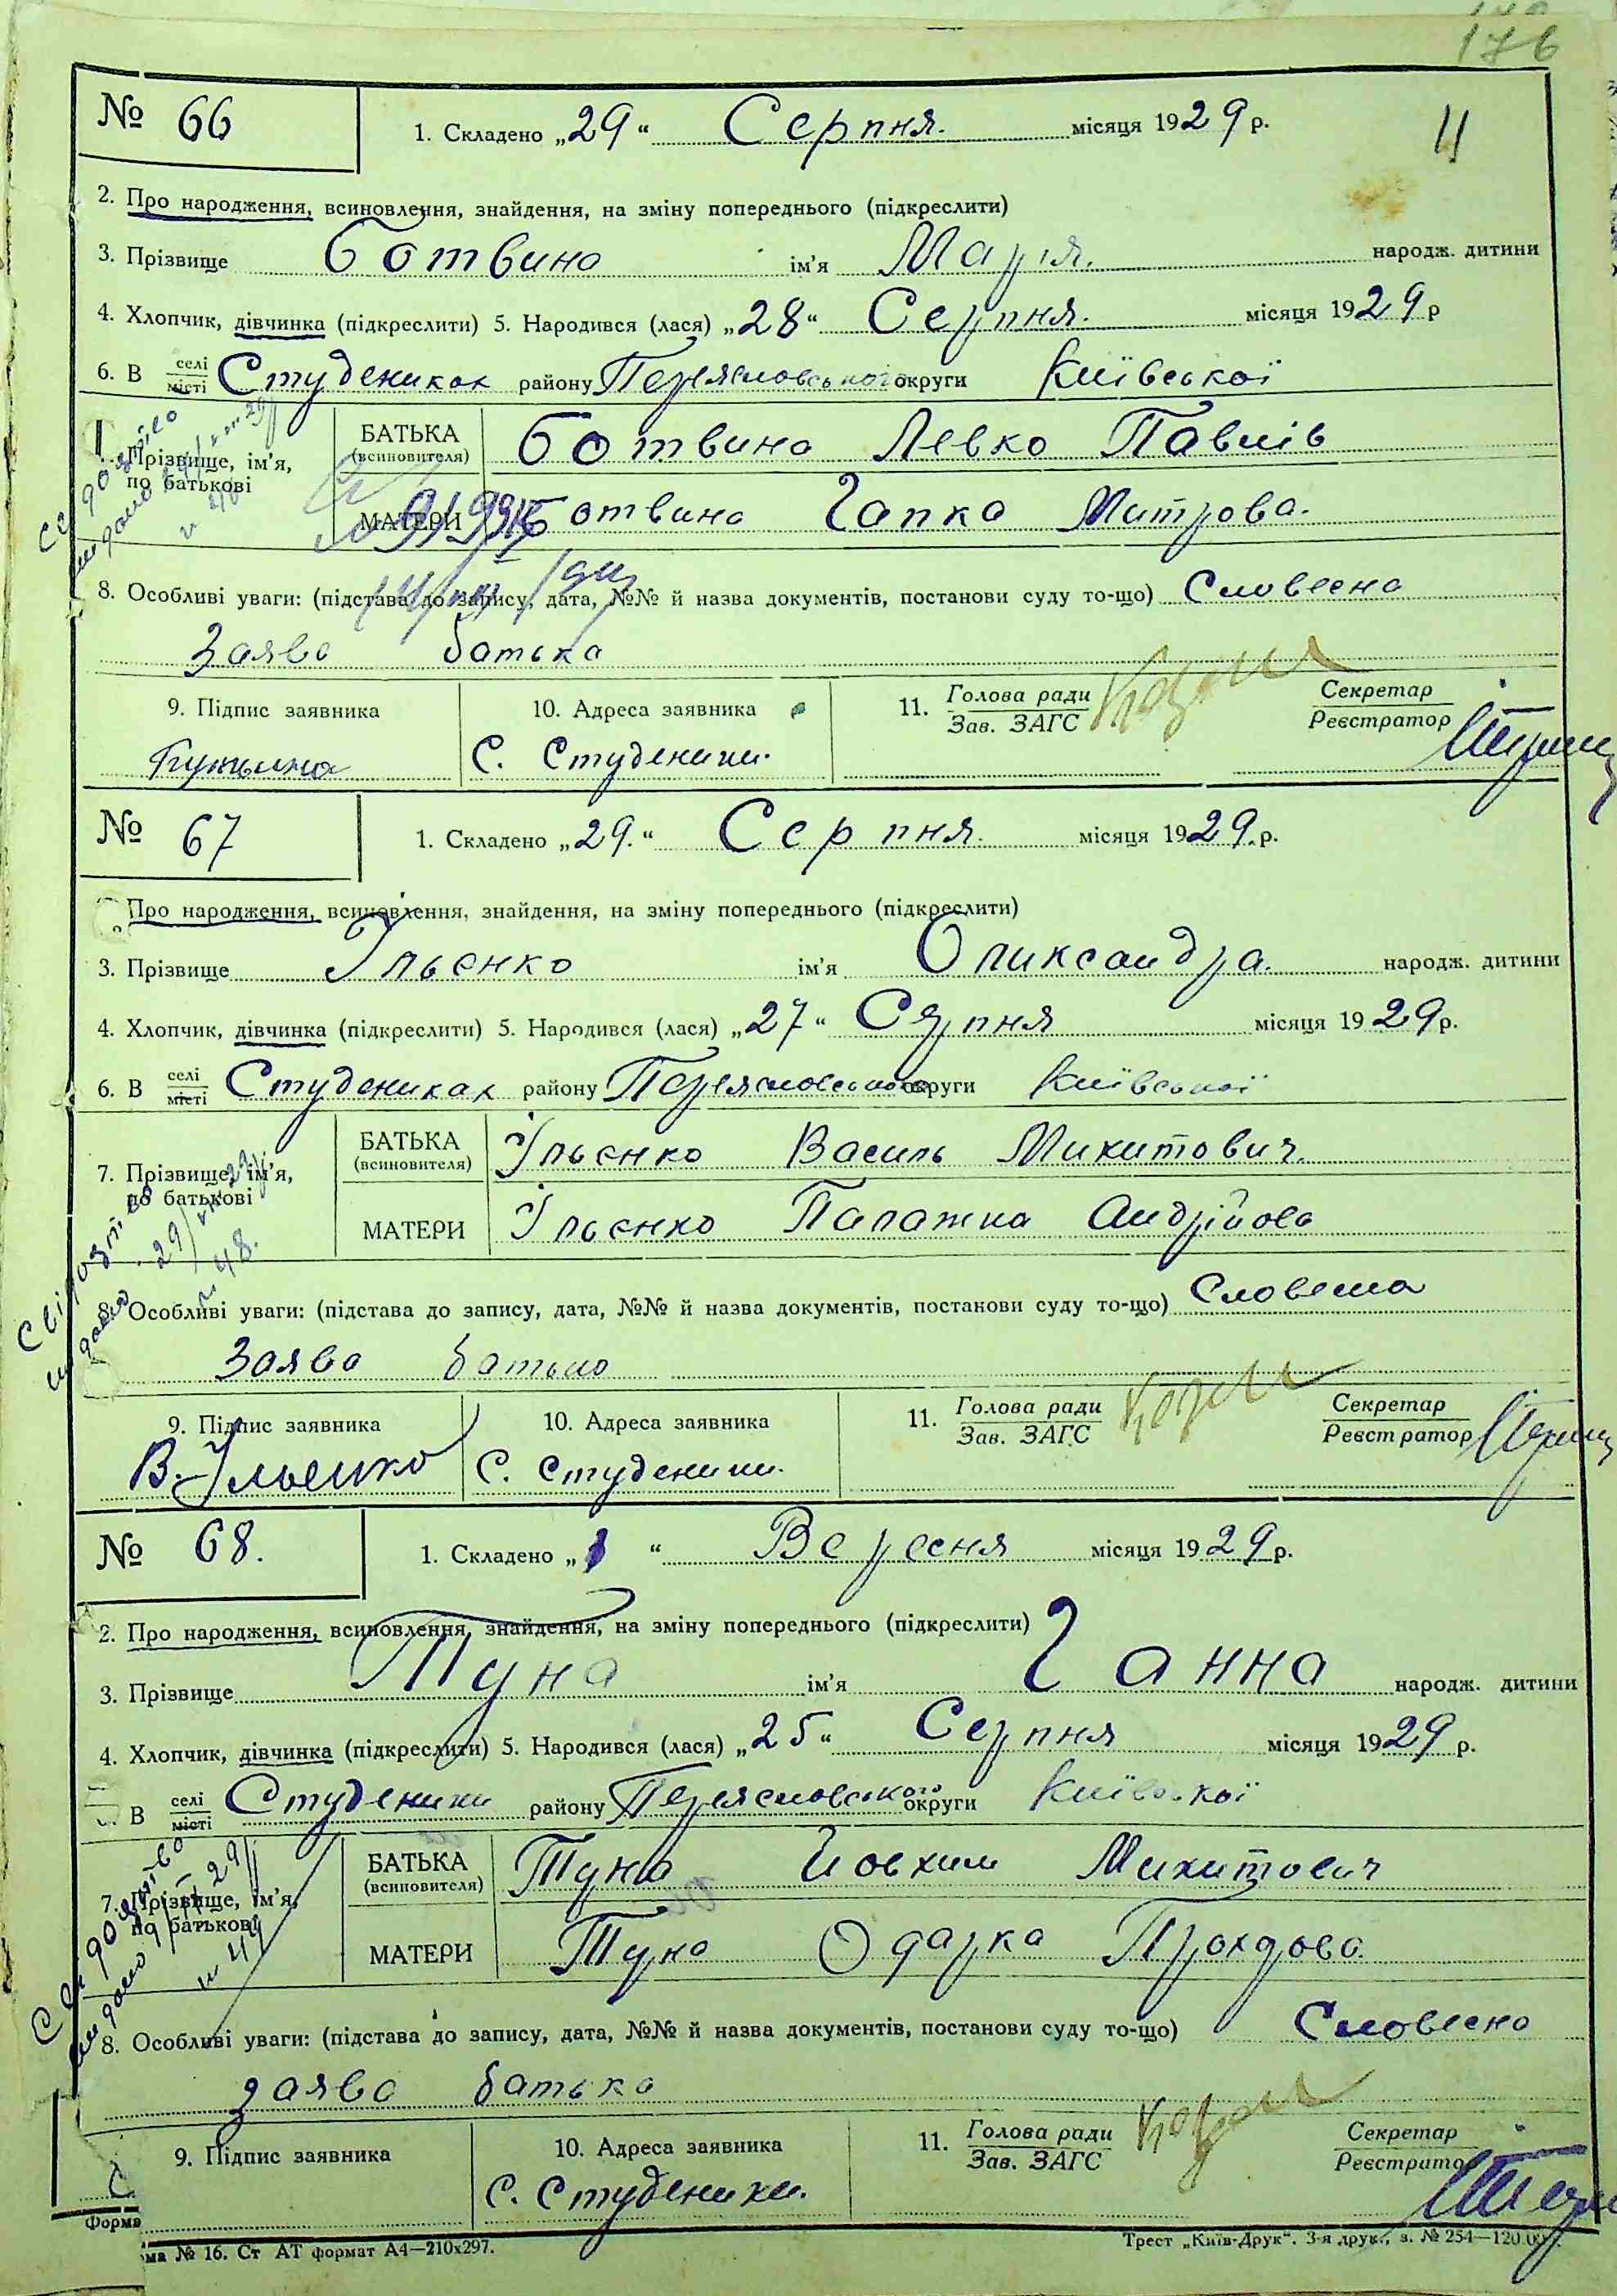 176
№ 66
1. Складено „29“ Серпня. місяця 1929 р.
2. Про народження, всиновлення, знайдення, на зміну попереднього (підкреслити)
3. Прізвище Ботвино ім'я Марія. народж. дитини
4. Хлопчик, дівчинка (підкреслити) 5. Народився (лася) „28“ Серпня. місяця 1929 р
6. В селі місті Студениках району Переяславського округи Київської
Прізвище, ім'я, по батькові
БАТЬКА (всиновителя) Ботвина Левко Павлів
МАТЕРИ Ботвина Гапка Митрова.
8. Особливі уваги: (підстава до запису, дата, №№ й назва документів, постанови суду то-що) Словесна
Заява батька
9. Підпис заявника 10. Адреса заявника 11. Голова ради Зав. ЗАГС Секретар Реєстратор
С. Студеники.
№ 67
1. Складено „29.“ Серпня. місяця 1929. р.
Про народження, всиновлення, знайдення, на зміну попереднього (підкреслити)
3. Прізвище Ільєнко ім'я Оликсандра. народж. дитини
4. Хлопчик, дівчинка (підкреслити) 5. Народився (лася) „27“ Серпня місяця 1929 р.
6. В селі місті Студениках району Переяславського округи Київської
7. Прізвище, ім'я, по батькові
БАТЬКА (всиновителя) Ільєнко Василь Микитович.
МАТЕРИ Ільєнко Палажка Андрійова
8. Особливі уваги: (підстава до запису, дата, №№ й назва документів, постанови суду то-що) Словесна
Заява батька
9. Підпис заявника 10. Адреса заявника 11. Голова ради Зав. ЗАГС Секретар Реєстратор
В. Ільенко С. Студеники.
№ 68.
1. Складено „1“ Вересня місяця 1929 р.
2. Про народження, всиновлення, знайдення, на зміну попереднього (підкреслити)
3. Прізвище Туна ім'я Ганна народж. дитини
4. Хлопчик, дівчинка (підкреслити) 5. Народився (лася) „25“ Серпня місяця 1929 р.
В селі місті Студеники району Переясловського округи Київської
7. Прізвище, ім'я, по батькові
БАТЬКА (всиновителя) Туна Йовхим Микитович
МАТЕРИ Туна Одарка Прохорова.
8. Особливі уваги: (підстава до запису, дата, №№ й назва документів, постанови суду то-що) Словесно
заява батька
9. Підпис заявника 10. Адреса заявника 11. Голова ради Зав. ЗАГС Секретар
С. Студеники.
Форма
ма № 16. Ст АТ формат А4—210х297. Трест „Київ-Друк“. 3-я друк., з. № 254—120.00